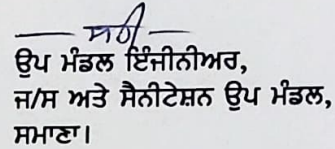 ਸਹੀ
ਉਪ ਮੰਡਲ ਇੰਜੀਨੀਅਰ,
ਜ/ਸ ਅਤੇ ਸੈਨੀਟੇਸ਼ਨ ਉਪ ਮੰਡਲ,
ਸਮਾਣਾ।